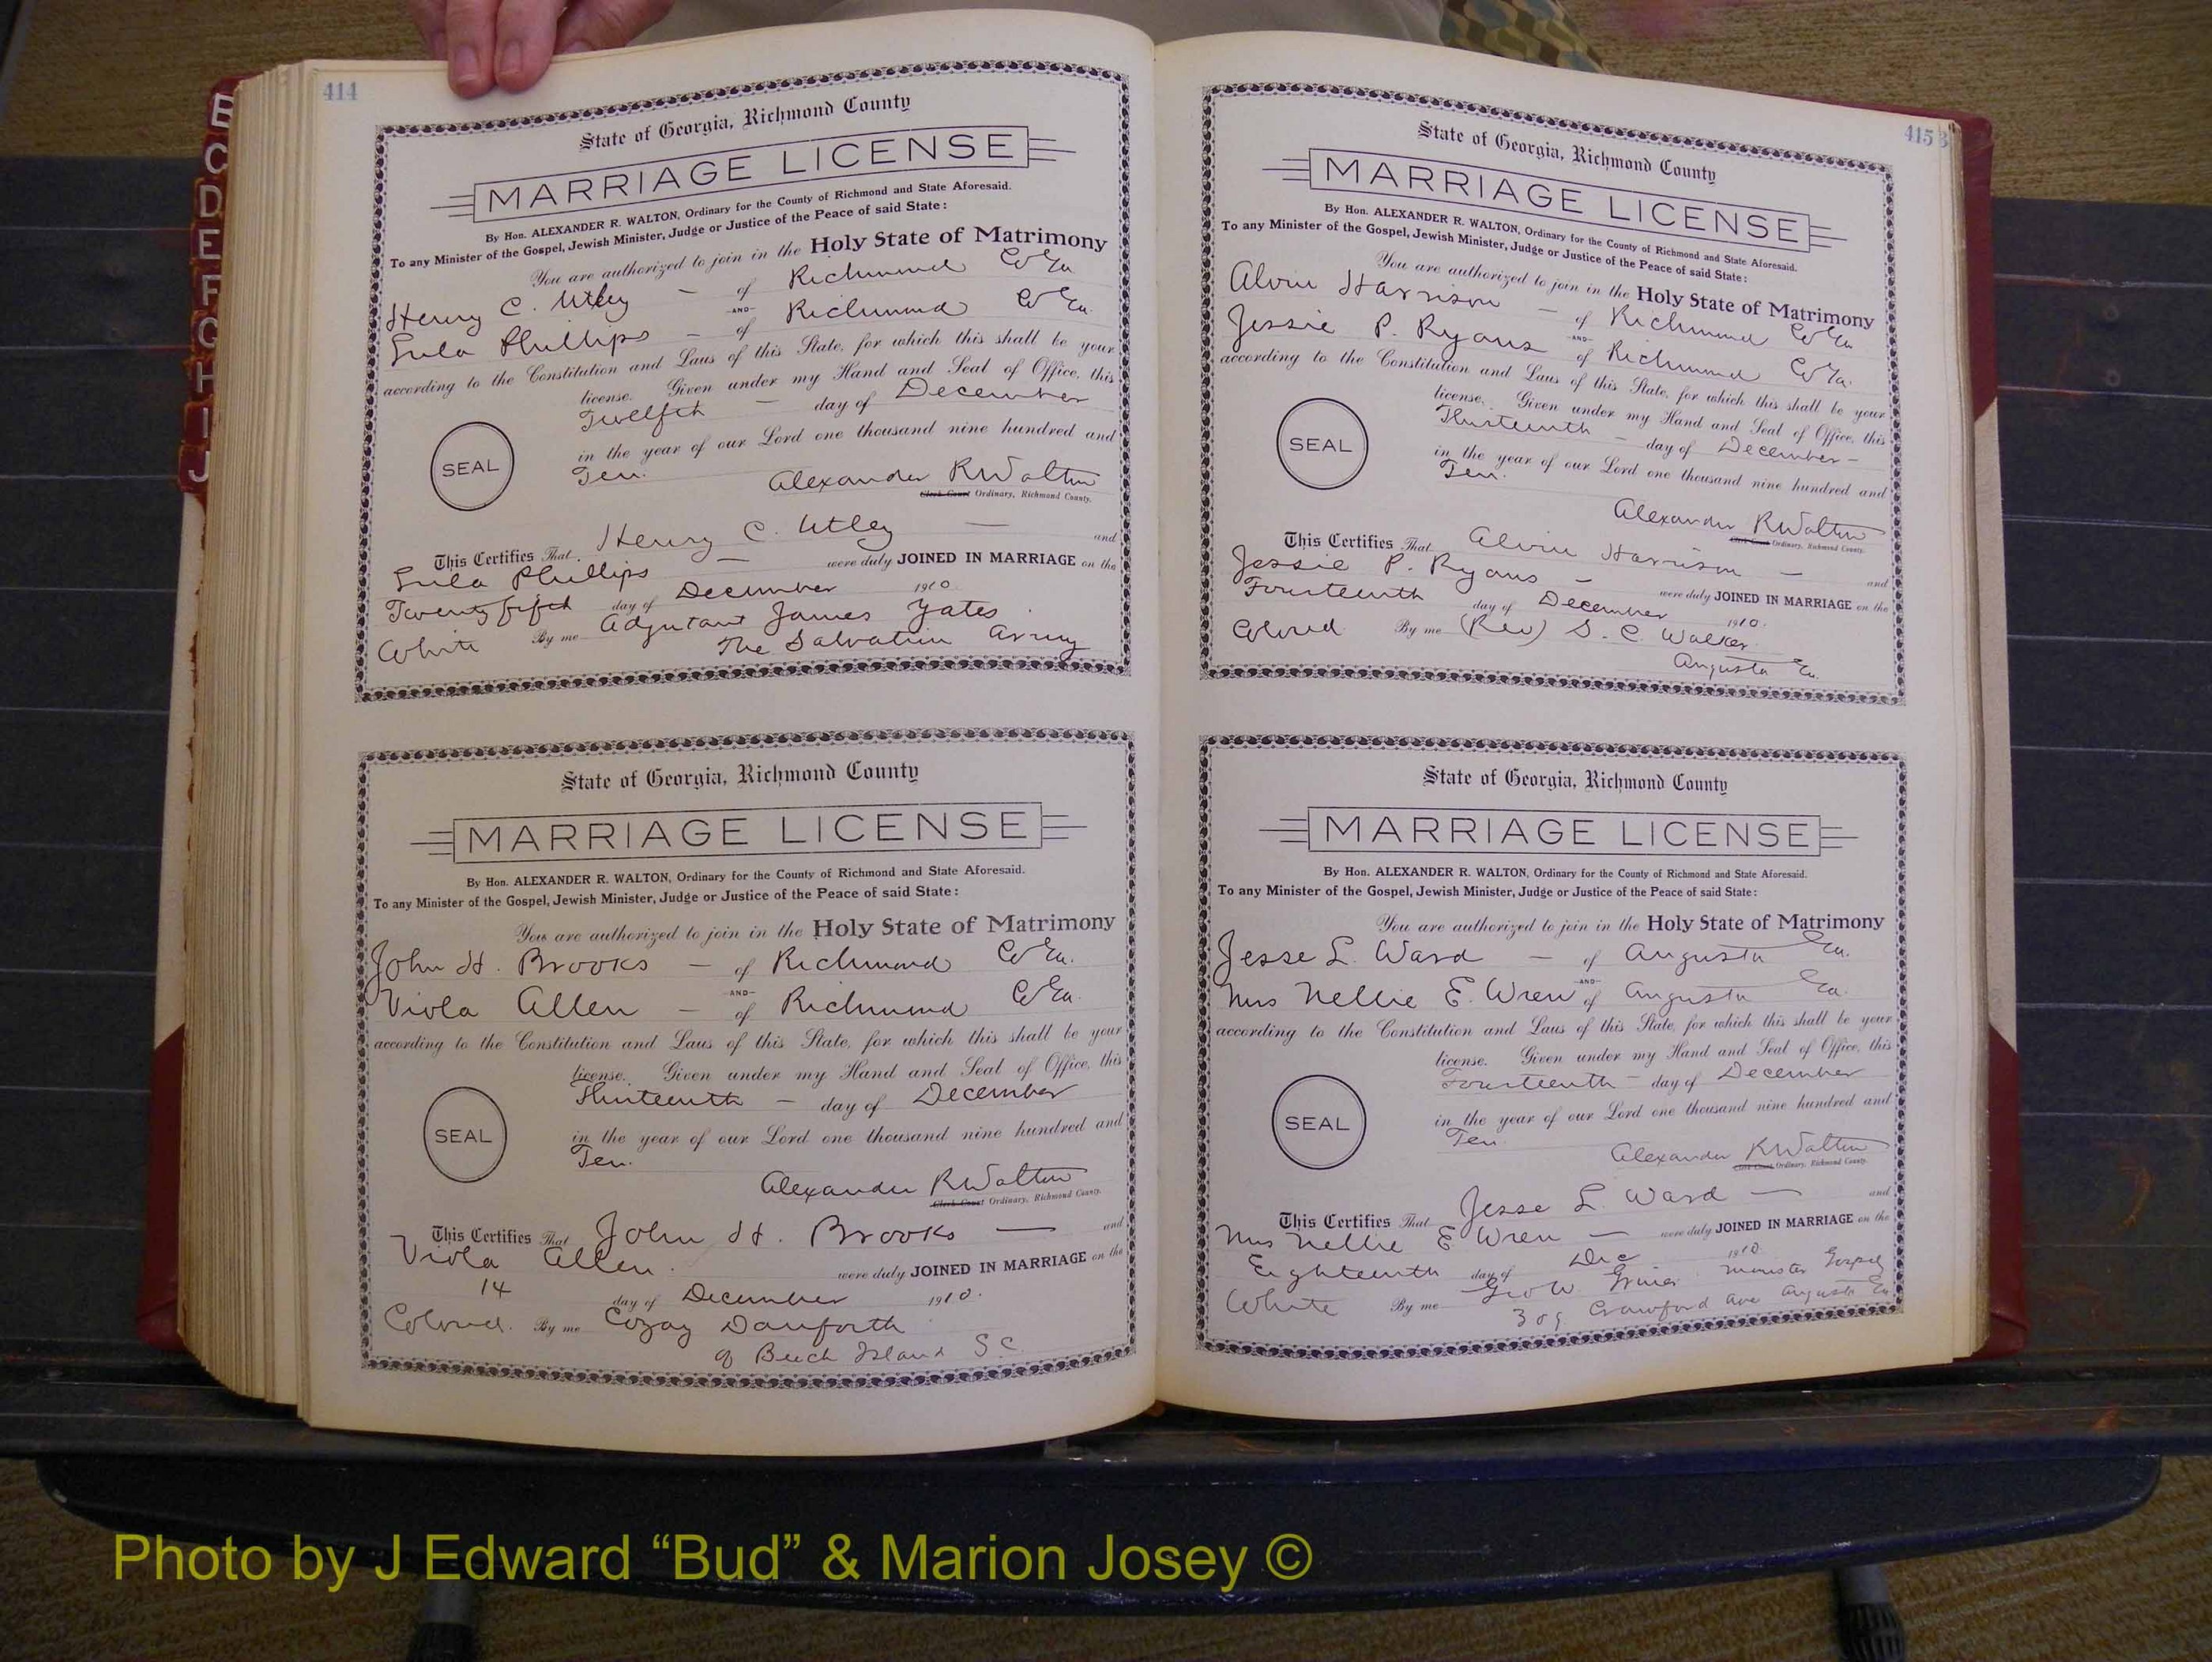 B
C
D
E
F
G
H
I
J
414
State of Georgia, Richmond County
MARRIAGE LICENSE
By Hon. ALEXANDER R. WALTON, Ordinary for the County of Richmond and State Aforesaid.
To any Minister of the Gospel, Jewish Minister, Judge or Justice of the Peace of said State:
You are authorized to join in the Holy State of Matrimony
Henry C. Utley - of Richmond Co Ga
-AND-
Lula Phillips - of Richmond Co Ga.
according to the Constitution and Laws of this State, for which this shall be your
license. Given under my Hand and Seal of Office, this
Twelfth - day of December
SEAL
in the year of our Lord one thousand nine hundred and
Ten.
Alexander R Walton
Clerk Court Ordinary, Richmond County.
This Certifies That Henry C. Utley - and
Lula Phillips - were duly JOINED IN MARRIAGE on the
Twenty fifth day of December 1910.
White By me Adjutant James Yates
The Salvation Army
State of Georgia, Richmond County
MARRIAGE LICENSE
By Hon. ALEXANDER R. WALTON, Ordinary for the County of Richmond and State Aforesaid.
To any Minister of the Gospel, Jewish Minister, Judge or Justice of the Peace of said State:
You are authorized to join in the Holy State of Matrimony
John H. Brooks - of Richmond Co Ga.
-AND-
Viola Allen - of Richmond Co Ga.
according to the Constitution and Laws of this State, for which this shall be your
license. Given under my Hand and Seal of Office, this
Thirteenth - day of December
SEAL
in the year of our Lord one thousand nine hundred and
Ten.
Alexander R Walton
Clerk Court Ordinary, Richmond County.
This Certifies That John H. Brooks - and
Viola Allen. were duly JOINED IN MARRIAGE on the
14 day of December 1910.
Colored. By me Cozay Danforth
of Beech Island S.C.
415
State of Georgia, Richmond County
MARRIAGE LICENSE
By Hon. ALEXANDER R. WALTON, Ordinary for the County of Richmond and State Aforesaid.
To any Minister of the Gospel, Jewish Minister, Judge or Justice of the Peace of said State:
You are authorized to join in the Holy State of Matrimony
Alvin Harrison - of Richmond Co Ga
-AND-
Jessie P. Ryans of Richmond Co Ga.
according to the Constitution and Laws of this State, for which this shall be your
license. Given under my Hand and Seal of Office, this
Thirteenth - day of December -
SEAL
in the year of our Lord one thousand nine hundred and
Ten.
Alexander R Walton
Clerk Court Ordinary, Richmond County.
This Certifies That Alvin Harrison - and
Jessie P. Ryans - were duly JOINED IN MARRIAGE on the
Fourteenth day of December 1910.
Colored By me (Rev) S. C. Walker
Augusta Ga.
State of Georgia, Richmond County
MARRIAGE LICENSE
By Hon. ALEXANDER R. WALTON, Ordinary for the County of Richmond and State Aforesaid.
To any Minister of the Gospel, Jewish Minister, Judge or Justice of the Peace of said State:
You are authorized to join in the Holy State of Matrimony
Jesse L. Ward - of Augusta Ga.
-AND-
Mrs Nellie E. Wren of Augusta Ga.
according to the Constitution and Laws of this State, for which this shall be your
license. Given under my Hand and Seal of Office, this
Fourteenth - day of December
SEAL
in the year of our Lord one thousand nine hundred and
Ten.
Alexander R Walton
Clerk Court Ordinary, Richmond County.
This Certifies That Jesse L. Ward - and
Mrs Nellie E Wren - were duly JOINED IN MARRIAGE on the
Eighteenth day of Dec 1910.
White By me Geo W Minister Gospel
309 Crawford Ave Augusta Ga
Photo by J Edward “Bud” & Marion Josey ©